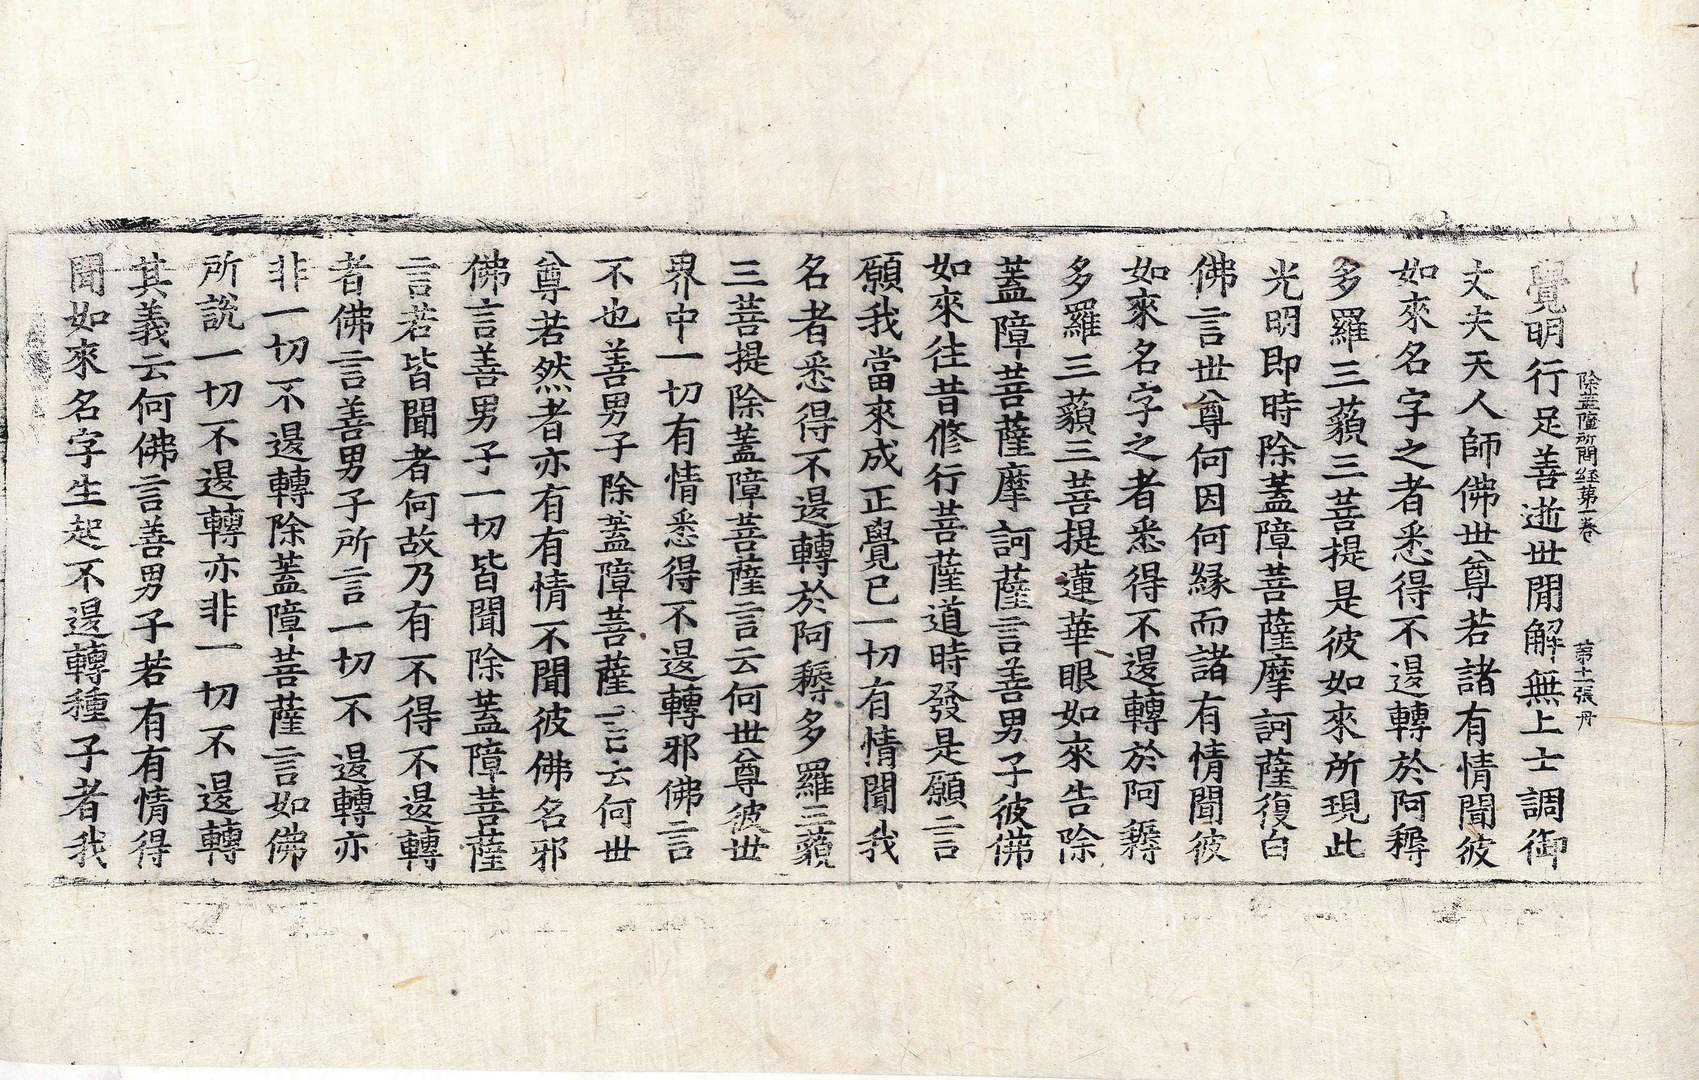 除蓋障所問經第一卷　第十一張丹
覺明行足善逝世閒解無上士調御
丈夫天人師佛世尊若諸有情聞彼
如來名字之者悉得不退轉於阿耨
多羅三藐三菩提是彼如來所現此
光明即時除蓋障菩薩摩訶薩復白
佛言世尊何因何緣而諸有情聞彼
如來名字之者悉得不退轉於阿耨
多羅三藐三菩提蓮華眼如來告除
蓋障菩薩摩訶薩言善男子彼佛
如來往昔修行菩薩道時發是願言
願我當來成正覺已一切有情聞我
名者悉得不退轉於阿耨多羅三藐
三菩提除蓋障菩薩言云何世尊彼世
界中一切有情悉得不退轉邪佛言
不也善男子除蓋障菩薩言云何世
尊若然者亦有有情不聞彼佛名邪
佛言善男子一切皆聞除蓋障菩薩
言若皆聞者何故乃有不得不退轉
者佛言善男子所言一切不退轉亦
非一切不退轉除蓋障菩薩言如佛
所說一切不退轉亦非一切不退轉
其義云何佛言善男子若有有情得
聞如來名字生起不退轉種子者我